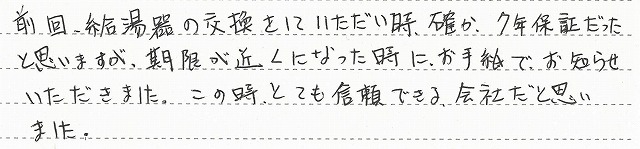 前回、給湯器の交換をしていただい時、確か、7年保証だった
と思いますが、期限が近くになった時に、お手紙で、お知らせ
いただきました。この時、とても信頼できる、会社だと思い
ました。